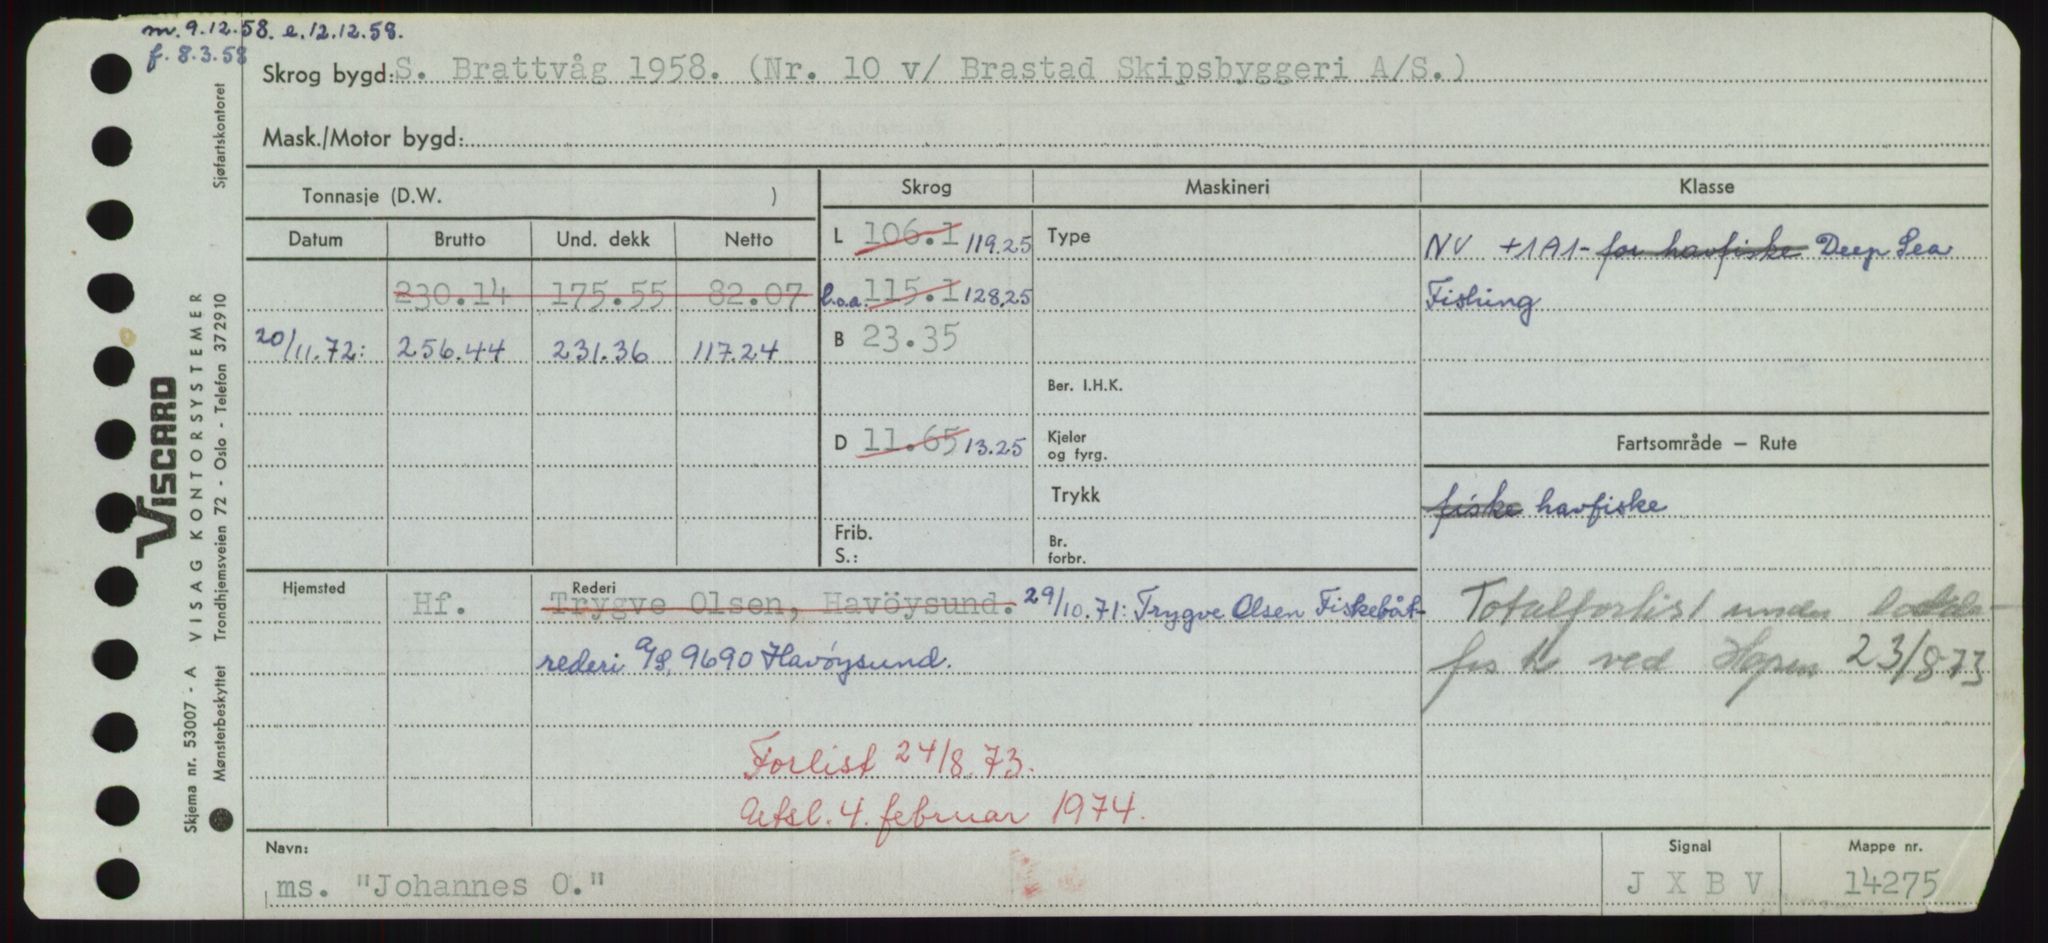 m. 9.12.58. e. 12.12.58.
f. 8.3.58
Skrog bygd: S. Brattvåg 1958. (Nr. 10 v/ Brastad Skipsbyggeri A/S.)
Mask./Motor bygd:
Tonnasje (D.W. )
Skrog Maskineri Klasse
Datum Brutto Und. dekk Netto
L 106.1 119.25 Type
NV +1A1- for havfiske Deep Sea
230.14 175.55 82.07
l.o.a. 115.1 128.25
Fishing
20/11.72: 256.44 231.36 117.24
B 23.35
Ber. I.H.K.
D 11.65 13.25
Kjeler
og fyrg.
Fartsområde – Rute
Trykk
fiske havfiske
Frib.
S.:
Br.
forbr.
Hjemsted Rederi
Hf. Trygve Olsen, Havöysund. 29/10.71: Trygve Olsen Fiskebåt-
rederi A/S, 9690 Havöysund.
Totalforlist under lodde-
fiske ved Hopen 23/8-73
Forlist 24/8.73.
Utsl. 4. februar 1974.
Navn: Signal Mappe nr.
ms. "Johannes O." J X B V 14275
Viscard
Skjema nr. 53007 - A VISAG KONTORSYSTEMER
Mønsterbeskyttet Trondhjemsveien 72 - Oslo - Telefon 372910 Sjøfartskontoret